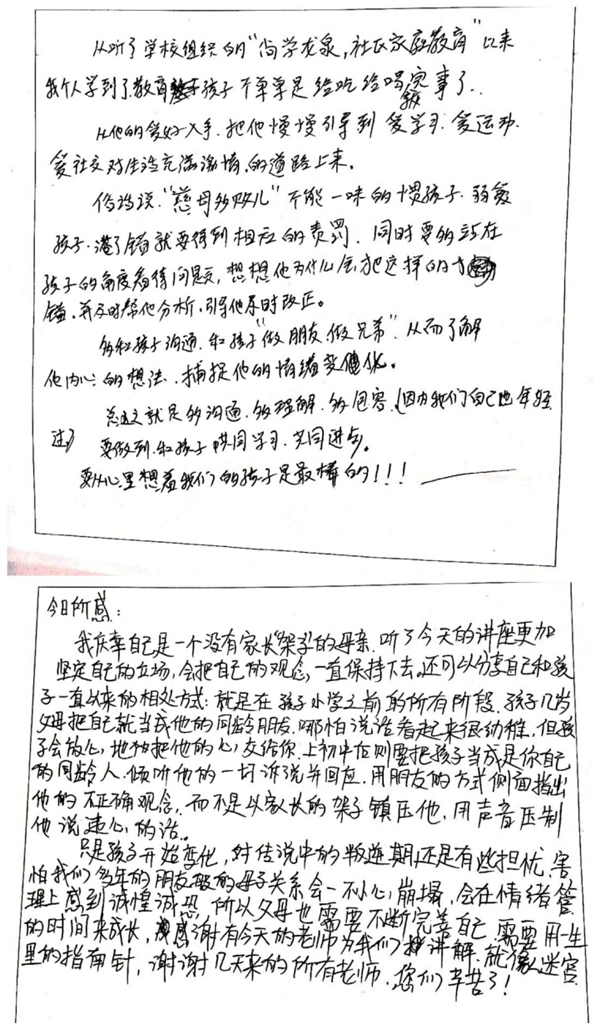 从听了学校组织的“尚学龙泉,社区家庭教育”以来
我个人学到了教育孩子不单单是给吃给喝完事了..
从他的爱好入手.把他慢慢引导到爱学习.爱运动.
爱社交对生活充满激情.的道路上来。
俗话说.“慈母多败儿”不能一味的惯孩子.弱爱
孩子.犯了错就要得到相应的责罚.同时要多站在
孩子的角度看待问题,想想他为什么会犯这样的
错.并及时帮他分析.引导他及时改正。
多和孩子沟通.和孩子“做朋友做兄弟”.从而了解
他内心的想法.捕捉他的情绪变化。
总之就是多沟通.多理解.多包容.(因为我们自己也年轻
过)要做到.和孩子共同学习.共同进步。
要从心里想着我们的孩子是最棒的!!!
今日所感:
我庆幸自己是一个没有家长“架子”的母亲.听了今天的讲座更加
坚定自己的立场,会把自己的观念,一直保持下去,还可以分享自己和孩
子一直以来的相处方式:就是在孩子小学之前的所有阶段.孩子几岁
父母把自己就当成他的同龄朋友.哪怕说话看起来很幼稚.但孩
子会放心,地把他的心交给你.上初中后则要把孩子当成是你自己
的同龄人.倾听他的一切诉说并回应.用朋友的方式侧面指出
他的不正确观念.而不是以家长的架子镇压他,用声音压制
他说违心的话。
只是孩子开始变化,对传说中的叛逆期还是有些担忧.害
怕我们多年的朋友般的母子关系会一不小心崩塌,会在情绪管
理上感到诚惶诚恐.所以父母也需要不断完善自己.需要用一生
的时间来成长,感谢有今天的老师为我们讲解.就像迷宫
里的指南针,谢谢几天来的所有老师.您们辛苦了!